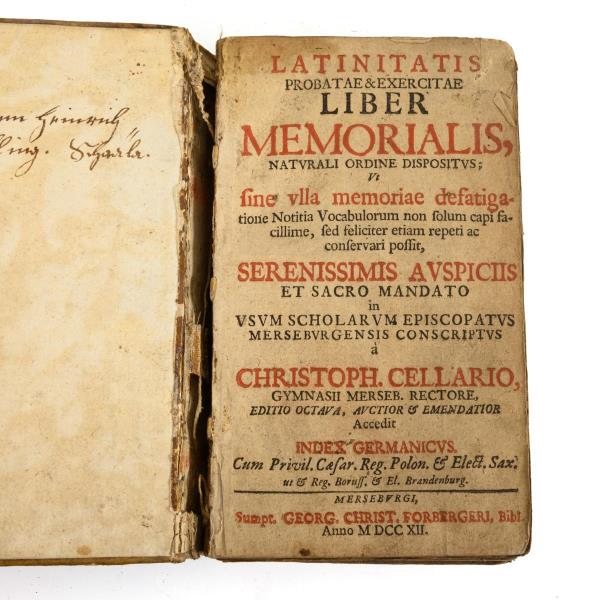 em Heinrich
ling. Schaala.
LATINITATIS
PROBATAE & EXERCITAE
LIBER
MEMORIALIS,
NATVRALI ORDINE DISPOSITVS;
Vt
sine vlla memoriae defatiga-
tione Notitia Vocabulorum non solum capi fa-
cillime, sed feliciter etiam repeti ac
conservari possit,
SERENISSIMIS AVSPICIIS
ET SACRO MANDATO
in
VSVM SCHOLARVM EPISCOPATVS
MERSEBVRGENSIS CONSCRIPTVS
à
CHRISTOPH. CELLARIO,
GYMNASII MERSEB. RECTORE,
EDITIO OCTAVA, AVCTIOR & EMENDATIOR
Accedit
INDEX GERMANICVS.
Cum Privil. Cæsar. Reg. Polon. & Elect. Sax.
ut & Reg. Boruss. & El. Brandenburg.
MERSEBVRGI,
Sumpt. GEORG. CHRIST. FORBERGERI, Bibl.
Anno M DCC XII.